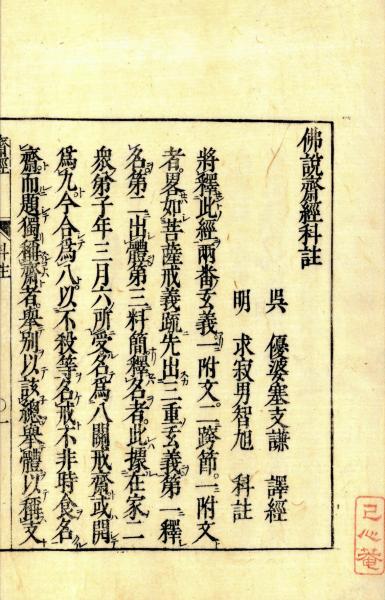 佛說齋經科註
吳 優婆塞支謙 譯經
明 求寂男智旭 科註
將釋此經兩番玄義一附文二跨節一附文
者畧如菩薩戒義疏先出三重玄義第一釋
名第二出體第三料簡釋名者此據在家二
衆弟子年三月六所受名爲八關戒齋或開
爲九今合爲八以不殺等名戒不非時食名
齋而題獨稱齋者舉別以該總舉體以稱支
齋經 科註 一
己心菴